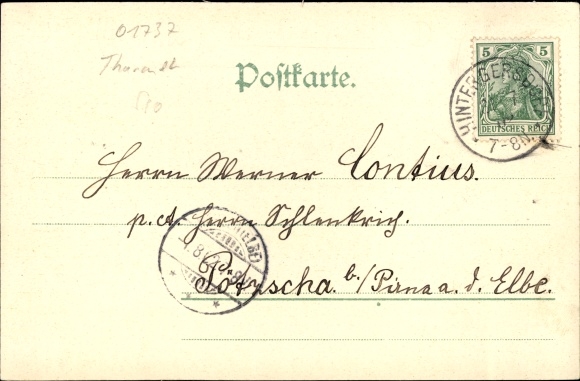 01737
Tharandt
Postkarte.
5 5
DEUTSCHES REICH
HINTERGERSDORF
7-8N.
Herrn Werner Contius.
p. A. Herrn Schlenkrich.
Potzscha. b./Pirna a. d. Elbe.